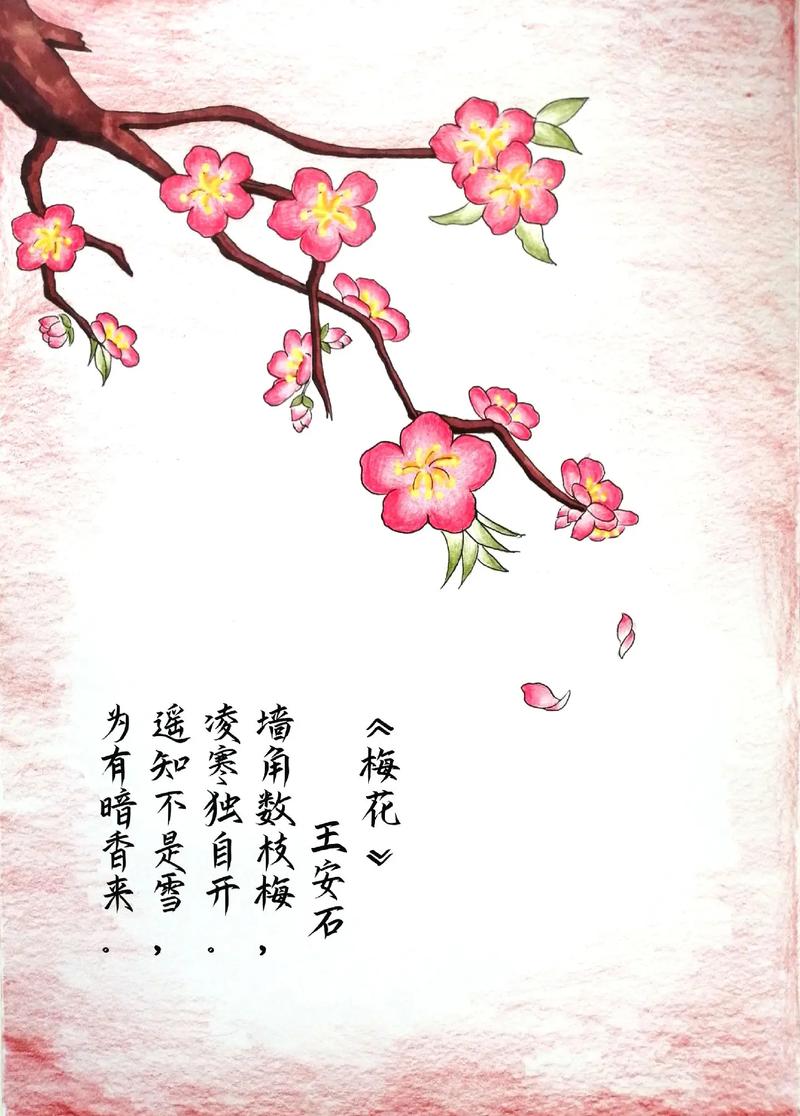 《梅花》
王安石
墙角数枝梅，
凌寒独自开。
遥知不是雪，
为有暗香来。